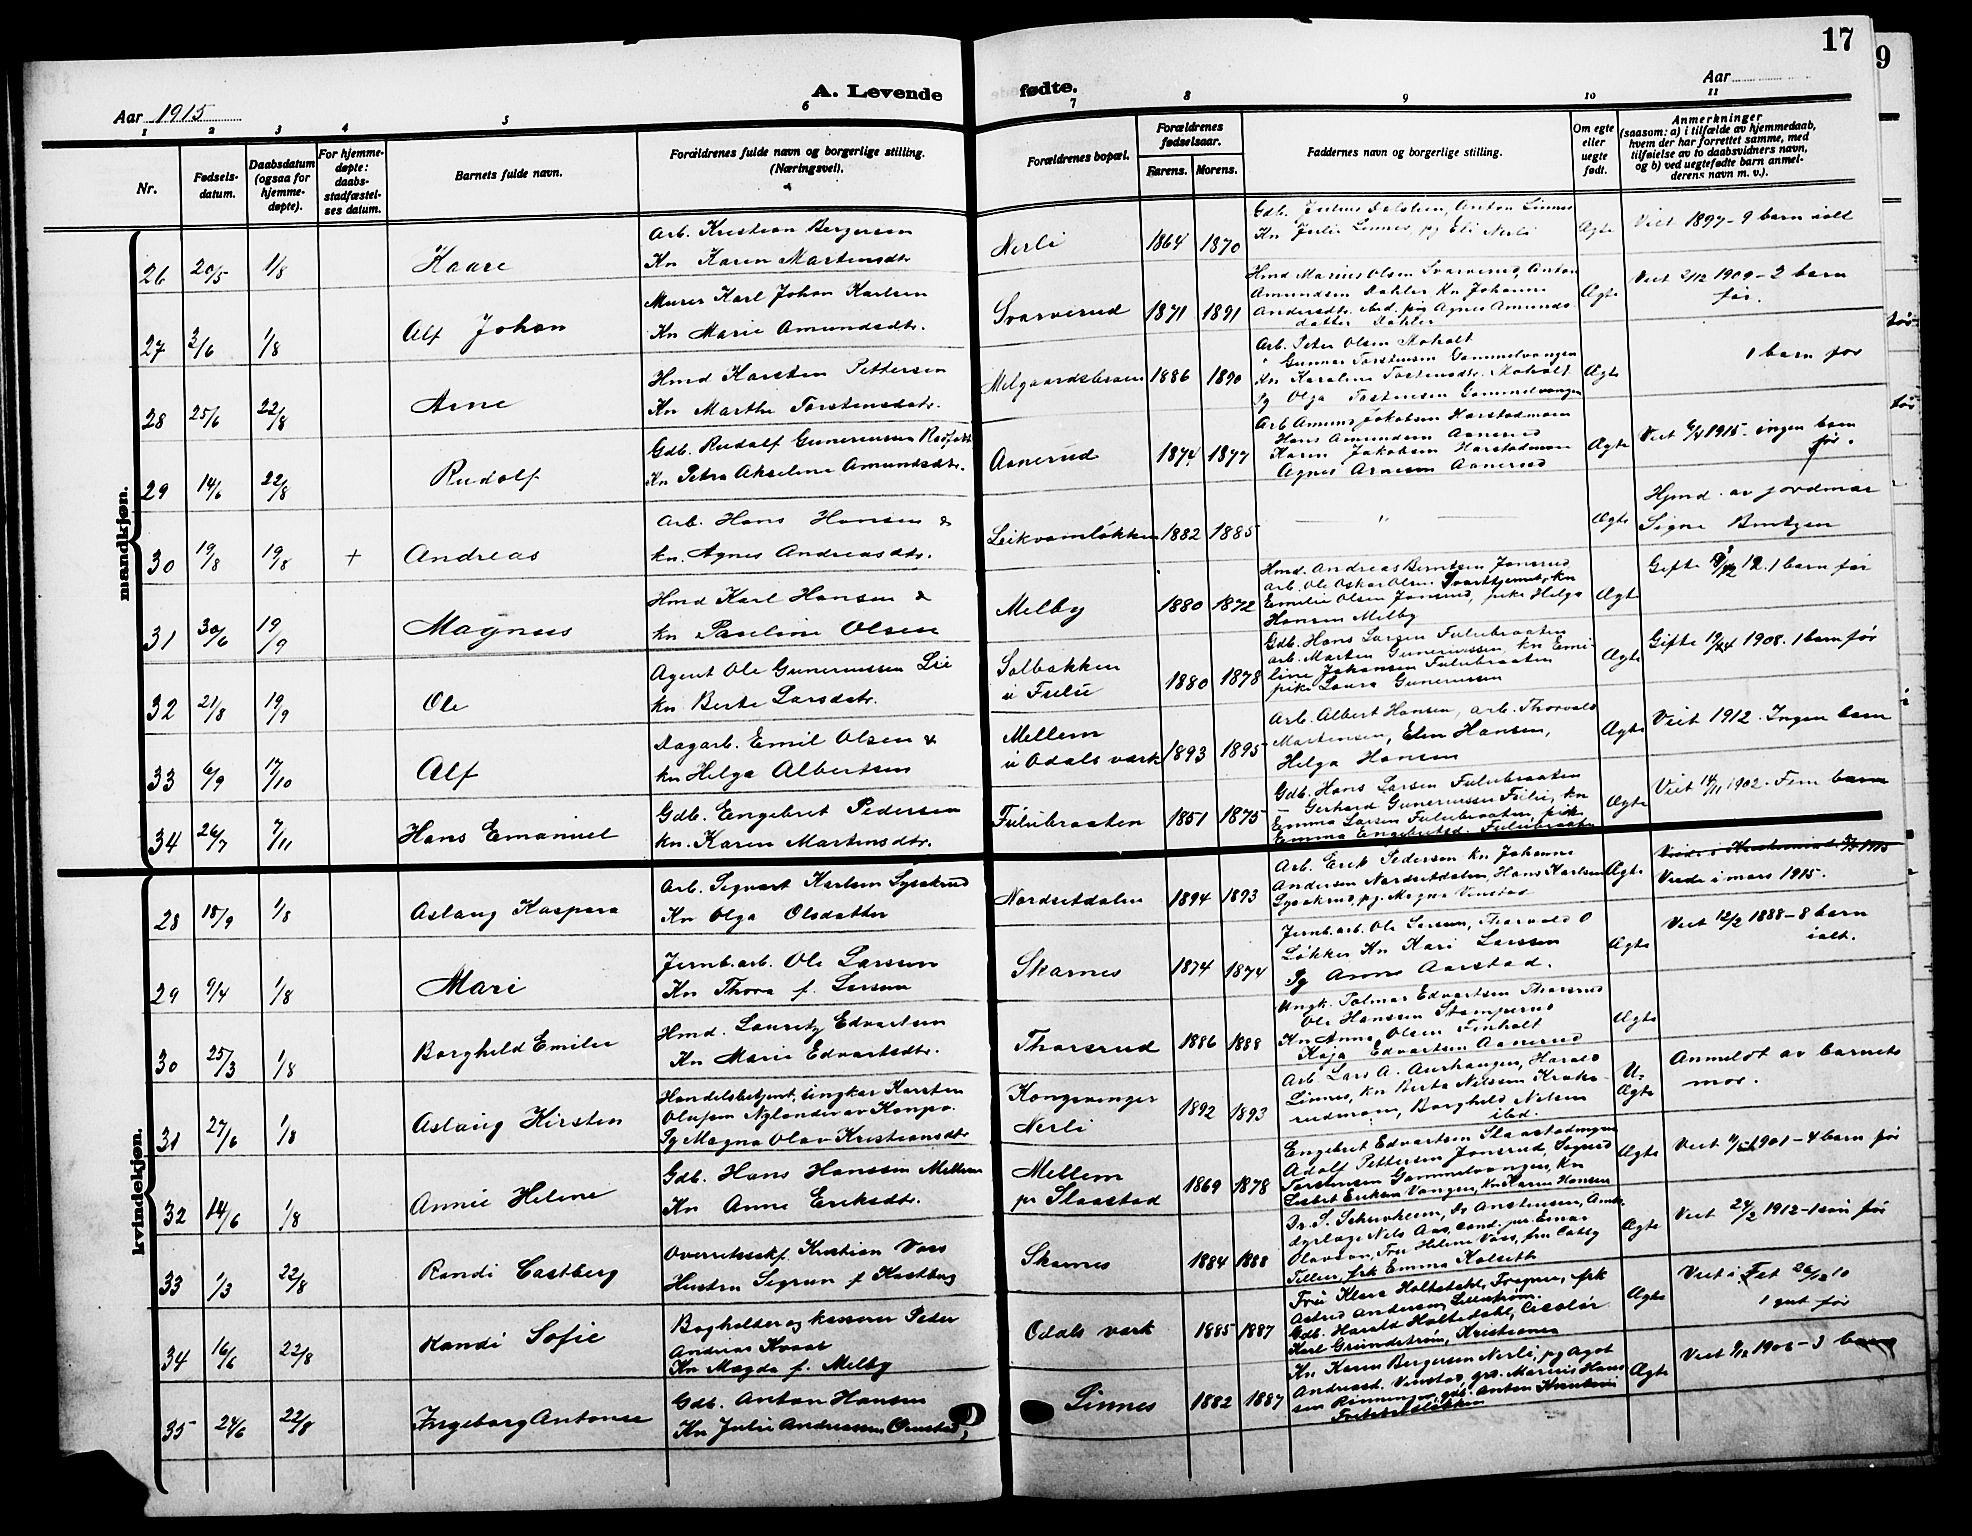 17
9
Aar 1915
A. Levende fødte.
Aar
1 2 3 4 5 6 7 8 9 10 11
Nr.
Fødsels-
datum.
Daabsdatum
(ogsaa for
hjemme-
døpte).
For hjemme-
døpte:
daabs-
stadfæstel-
ses datum.
Barnets fulde navn.
Forældrenes fulde navn og borgerlige stilling.
(Næringsvei).
Forældrenes bopæl.
Forældrenes
fødselsaar.
Farens. Morens.
Faddernes navn og borgerlige stilling.
Om egte
eller
uegte
født.
Anmerkninger
(saasom: a) i tilfælde av hjemmedaab,
hvem der har forrettet samme, med
tilføielse av to daabsvidners navn,
og b) ved uegtefødte barn anmel-
derens navn m. v.).
mandkjøn.
26 20/5 1/8 Kaare
Arb. Kristian Bergersen
Kn Karen Martensdtr
Nerli 1864 1870
Gdb. Julius Dalstein, Anton Linnes
Kn Julie Linnes, pg Eli Nerli
Ægte
Viet 1897 - 9 barn ialt
27 3/6 1/8 Alf Johan
Murer Karl Johan Karlsen
Kn Marie Amundsdtr.
Svarverud 1871 1891
Hmd Marius Olsen Svarverud, Anton
Amundsen Dahler Kn Johanne
Andersdtr. ibid. pig Agnes Amunds
datter Dahler
Ægte
Viet 2/12 1909 - 2 barn
før.
28 25/6 22/8 Arne
Hmd Karsten Pettersen
Kn Marthe Torstensdatr.
Melgaardsbraaten 1886 1890
Arb. Peter Olsen Moholt
Gunnar Torstensen Gammelvangen
Kn Karoline Torstensdtr. Moholt
Pg Olga Torstensen Gammelvangen
Ægte
1 barn før
29 14/6 22/8 Rudolf
Gdb. Rudolf Gunerussen
Kn Petra Akseline Amundsdtr.
Aanerud 1874 1877
Arb Amund Jakobsen Harstadmoen
Hans Amundsen Aanerud
Karen Jakobsen Harstadmoen
Agnes Arnesen Aanerud
Ægte
Viet 6/4 1915 - ingen barn
før.
30 19/8 19/8 + Andreas
Arb. Hans Hansen &
kn. Agnes Andreasdtr.
Leikvamløkken 1882 1885
— " —
Ægte
Hjmd. av jordmor
Signe Berntzen
31 30/6 19/9 Magnus
Hmd Karl Hansen &
kn Pauline Olsen
Melby 1880 1872
Hmd. Andreas Berntsen Jonsrud
arb. Ole Oskar Olsen Svarttjernet, kn
Emilie Olsen Jonsrud, pike Helga
Hansen Melby
Ægte
Gifte 12. 1 barn før
32 21/8 19/9 Ole
Agent Ole Gunerussen Lie
kn. Berte Larsdatr.
Solbakken
u Fulu 1880 1878
Gdb. Hans Larsen Fulubraaten
arb. Marten Gunerussen, kn Emi-
line Johansen Fulubraaten
pike Laura Gunerussen
Ægte
Gifte 1908. 1 barn før
33 6/9 17/10 Alf
Dagarb. Emil Olsen &
kn Helga Albertsen
Mellem
u Odals verk 1893 1895
Arb. Albert Hansen, arb. Thorvald
Martensen, Elen Hansen,
Helga Hansen
Ægte
Viet 1912. Ingen barn
34 26/7 7/11 Hans Emanuel
Gdb. Engebret Pedersen
kn. Karen Martinsdtr.
Fulubraaten 1851 1875
Gdb. Hans Larsen Fulubraaten
Gerhard Gunerussen Fulu, kn
Emma Larsen Fulubraaten, pike
Emma Engebretsd. Fulubraaten
Ægte
Viet 14/11 1902. Fem barn
kvindekjøn.
28 18/9 1/8 Aslaug Kaspara
Arb. Sigvart Karlsen Lysakrud
Kn Olga Olsdatter
Nordsetdalen 1894 1893
Arb. Erik Pedersen kn Johanne
Andersen Nordsetdalen, Hans Karlsen
Lysakrud, pg. Magna Vinstad
Ægte
Viede i Kristiania 1915
Viede i mars 1915.
29 9/4 1/8 Mari
Jernb.arb. Ole Larssen
Kn Thora f. Larsen
Skarnes 1874 1874
Jernb.arb. Ole Larssen, Thorvald O
Løkken Kn Kari Larssen
Pg Anna Aarstad.
Ægte
Viet 12/2 1888 - 8 barn
ialt.
30 25/3 1/8 Borghild Emilie
Hmd. Lauritz Edvartsen
Kn Marie Edvartsdtr.
Thorsrud 1886 1888
Ungk. Palmar Edvartsen Thorsrud
Ole Hanssen Stamperud
Kn Anna Olsen Finholt
Kaja Edvartsen Aanerud
Ægte
31 27/6 1/8 Aslaug Kirsten
Handelsbetjent, ungkar Karsten
Olufsen Nylander av Kongsv.
Pg Magna Olav Kristiansdtr
Kongsvinger
Nerli 1892 1893
Arb Lars A. Aurhaugen, Harald
Linnes, kn Berta Nilssen Krake-
rudmoen, Borghild Nilsen
ibd.
U-
Ægte
Anmeldt av barnets
mor.
32 14/6 1/8 Annie Helene
Gdb. Hans Hanssen Mellem
Kn Anne Eriksdtr.
Mellem
pr Slaastad 1869 1878
Engebret Edvartsen Slaastadengen
Adolf Pettersen Jonsrud, Sigurd
Torstensen Gammelvangen, Kn
Lisbet Eriksen Vangen, kn Karen Hansen
Ægte
Viet 1901 - 4 barn før
33 1/3 22/8 Randi Castberg
Overretssakf. Kristian Voss
Hustru Sigrun f. Kastberg
Skarnes 1884 1888
Dr. S. Schivheim, Dr Anstensen, Amts-
dyrlæge Nils Aas, cand. jur Einar
Olavson, Fru Helene Voss, fru Cathy
Tillier, frk Emma Kolseth
Ægte
Viet 24/2 1912 - 1 søn før
34 16/6 22/8 Randi Sofie
Bogholder og kasserer Peder
Andreas Kvaal
Kn Magda f. Melby
Odals verk 1885 1887
Fru Klara Holtedahl, Trogner, frk
Astrid Andersen, Lillestrøm.
Gdb. Harald Holtedahl,
Karl Grundstrøm, Kristiania
Ægte
Viet i Fet 26/12 10
1 gut før
35 24/6 22/8 Ingeborg Antonie
Gdb. Anton Hansen
Kn Julie Andreassen Ørnstad,
Linnes 1882 1887
Kn Karen Bergersen Nerli, pg Agot
Andreasd. Vinstad, grd. Marinis Hans
sen Rinnungen, gdb. Anton Kristian
Ægte
Viet 1906 - 3 barn